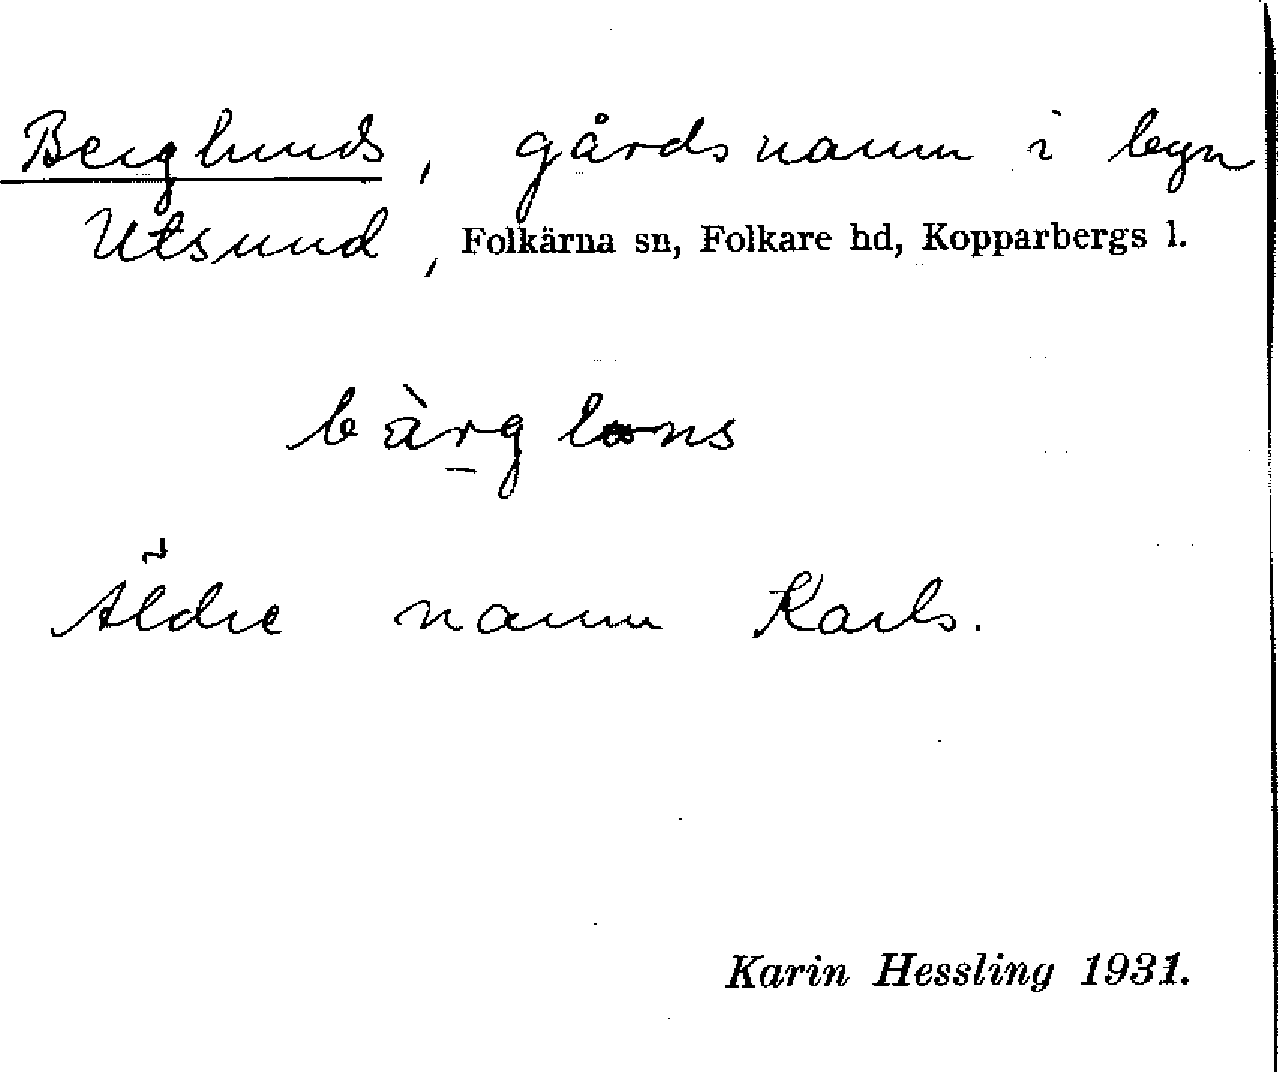 Berglunds, gårdsnamn i byn
Utsund, Folkärna sn, Folkare hd, Kopparbergs l.
bàrg lꝏns
Äldre namn Karls.
Karin Hessling 1931.